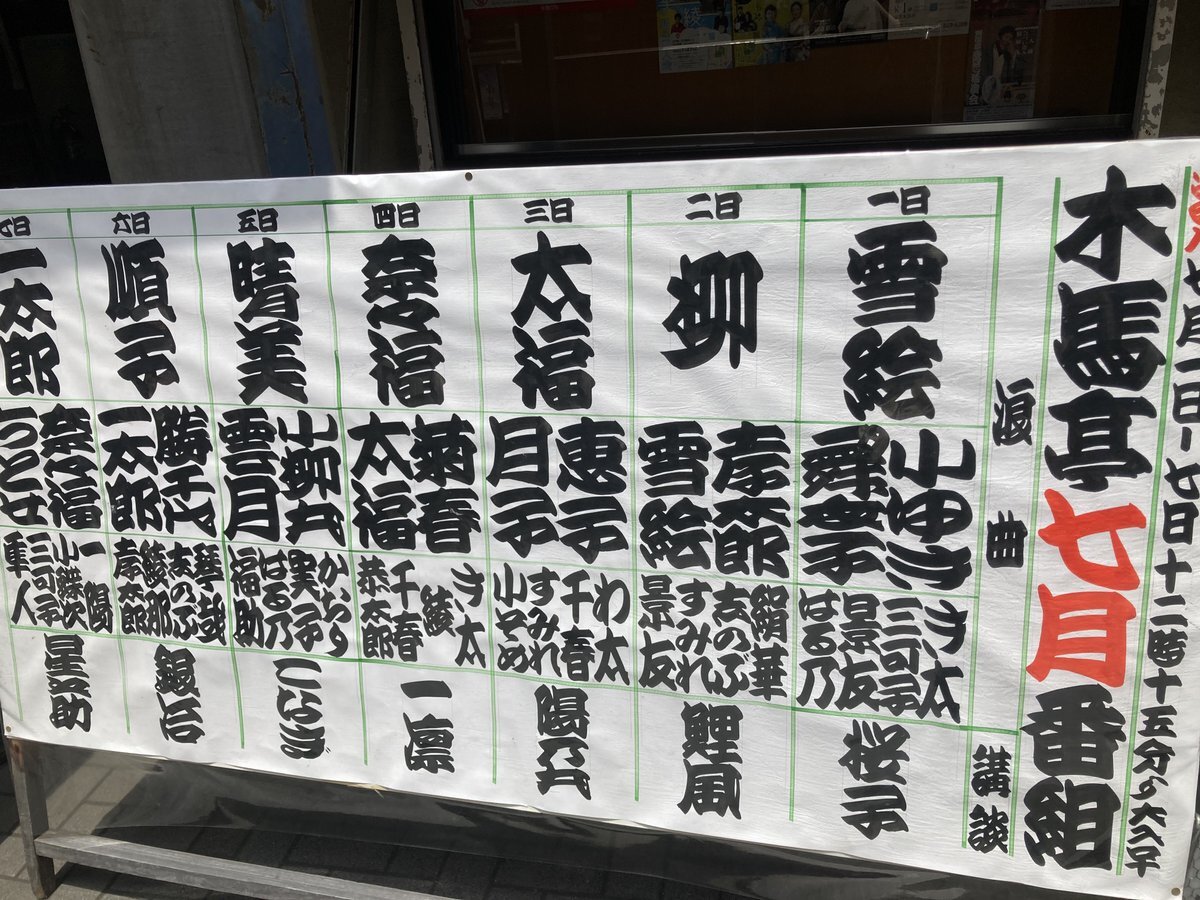 七月一日-七日十二時十五分の
木馬亭七月番組
浪曲
講談
一日
雪絵
舞衣子
ヲ太
三可子
景友
はる乃
桜子
二日
柳
孝太郎
雪絵
絹華
志のぶ
すみれ
景友
鯉風
三日
太福
恵子
月子
わ太
千春
すみれ
小そめ
陽乃丸
四日
奈々福
菊春
太福
ヲ太
綾
千春
恭太郎
一凛
五日
晴美
小柳丸
雲月
実子
はる乃
福助
こなぎ
六日
順子
勝千代
一太郎
琴哉
志のぶ
綾那
孝太郎
銀冶
七日
一太郎
奈々福
一陽
小蝶次
三可子
隼人
星之助